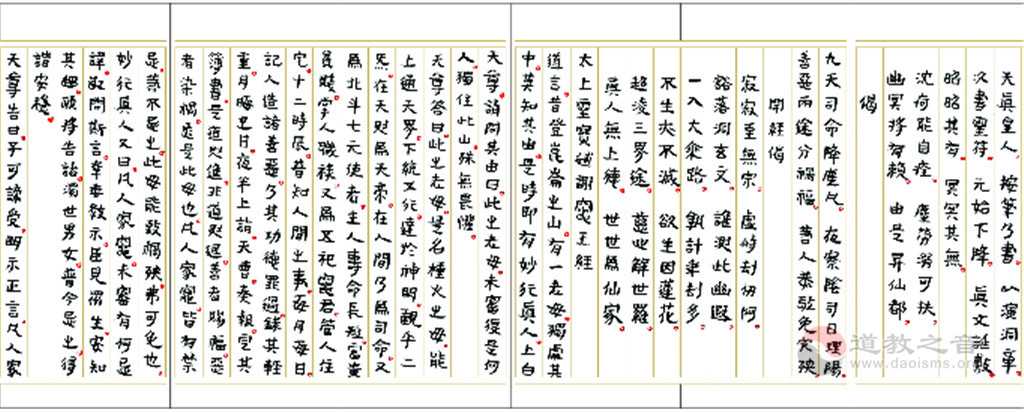 天真皇人 按筆乃書 以演洞章
次書靈符 元始下降 真文誕敷
昭昭其有 冥冥其無
沈疴能自痊 塵勞溺可扶
幽冥將有賴 由是昇仙都
偈
九天司命降塵凡 夜察陰司日理陽
善惡兩途分禍福 善人恭敬免灾殃
開經偈
寂寂至無宗 虛峙劫仞阿
豁落洞玄文 誰測此幽遐
一入大乘路 孰計年劫多
不生亦不滅 欲生因蓮花
超淩三界途 慈心解世羅
真人無上德 世世為仙家
太上靈寶補謝竈王經
道言昔登崑崙之山有一老母獨處其
中莫知其由是時即有妙行真人上白
天尊請問其由曰此之老母未審復是何
人獨住此山殊無畏懼
天尊答曰此之老母是名種火之母能
上通天界下統五行達於神明觀乎二
炁在天則為天帝在人間乃為司命又
為北斗七元使者主人壽命長短富貴
貧賤掌人職祿又為五祀竈君管人住
宅十二時辰普知人間之事每月每日
記人造諸善惡及其功德罪過錄其輕
重月晦之日夜半上詣天曹奏報定其
簿書是道則進非道則退善者賜福惡
者染禍是此母也凡人家竈皆有禁
忌若不忌之此母能致禍殃弗可免也
妙行真人又曰凡人家竈未審有何忌
諱敢問斯言幸垂教示臣見生安知
其細願將告諸濁世男女普令忌之得
諸安穩
天尊告曰子可諦受明示正言凡人家
道教之音
www.daoisms.org